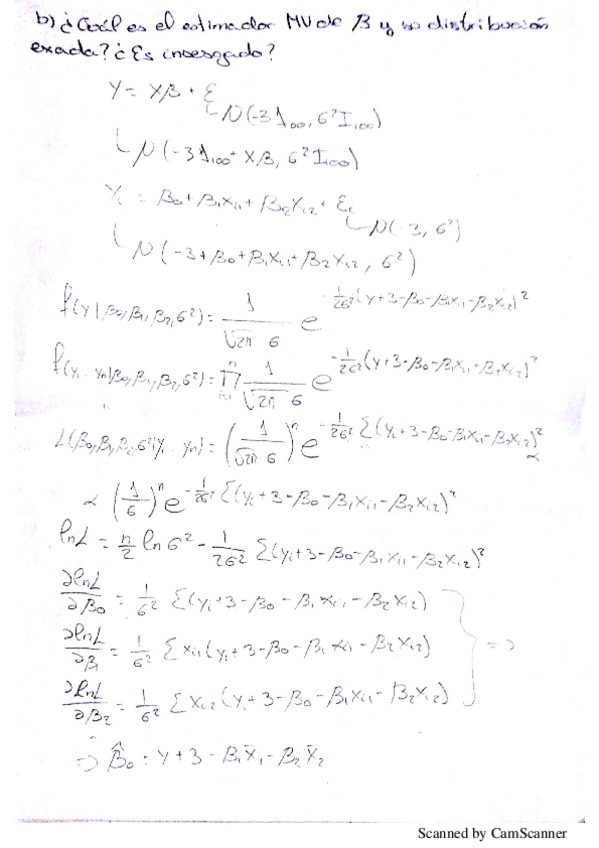 b) ¿Cuál es el estimador MV de β y su distribución
exacta? ¿Es insesgado?
Y = Xβ + ε
N(-3 1₁₀₀, σ² I₁₀₀)
N(-3 1₁₀₀ + Xβ, σ² I₁₀₀)
Yᵢ = β₀ + β₁Xᵢ₁ + β₂Xᵢ₂ + εᵢ
N(-3, σ²)
N(-3 + β₀ + β₁Xᵢ₁ + β₂Xᵢ₂, σ²)
f(y|β₀,β₁,β₂,σ²) = 1/(√2π σ) e^(-1/2σ² (y+3-β₀-β₁xᵢ₁-β₂xᵢ₂)²)
f(y₁...yₙ|β₀,β₁,β₂,σ²) = ∏ⁿᵢ₌₁ 1/(√2π σ) e^(-1/2σ² (y+3-β₀-β₁xᵢ₁-β₂xᵢ₂)²)
L(β₀,β₁,β₂,σ²|y₁...yₙ) = (1/(√2π σ))ⁿ e^(-1/2σ² Σ(yᵢ+3-β₀-β₁xᵢ₁-β₂xᵢ₂)²) ∝
∝ (1/σ)ⁿ e^(-1/2σ² Σ(yᵢ+3-β₀-β₁xᵢ₁-β₂xᵢ₂)²)
lnL = n/2 ln σ² - 1/2σ² Σ(yᵢ+3-β₀-β₁xᵢ₁-β₂xᵢ₂)²
∂lnL/∂β₀ = 1/σ² Σ(yᵢ+3-β₀-β₁xᵢ₁-β₂xᵢ₂)
∂lnL/∂β₁ = 1/σ² Σxᵢ₁(yᵢ+3-β₀-β₁xᵢ₁-β₂xᵢ₂) =>
∂lnL/∂β₂ = 1/σ² Σxᵢ₂(yᵢ+3-β₀-β₁xᵢ₁-β₂xᵢ₂)
=> β̂₀ = y + 3 - β₁x̄₁ - β₂x̄₂
Scanned by CamScanner